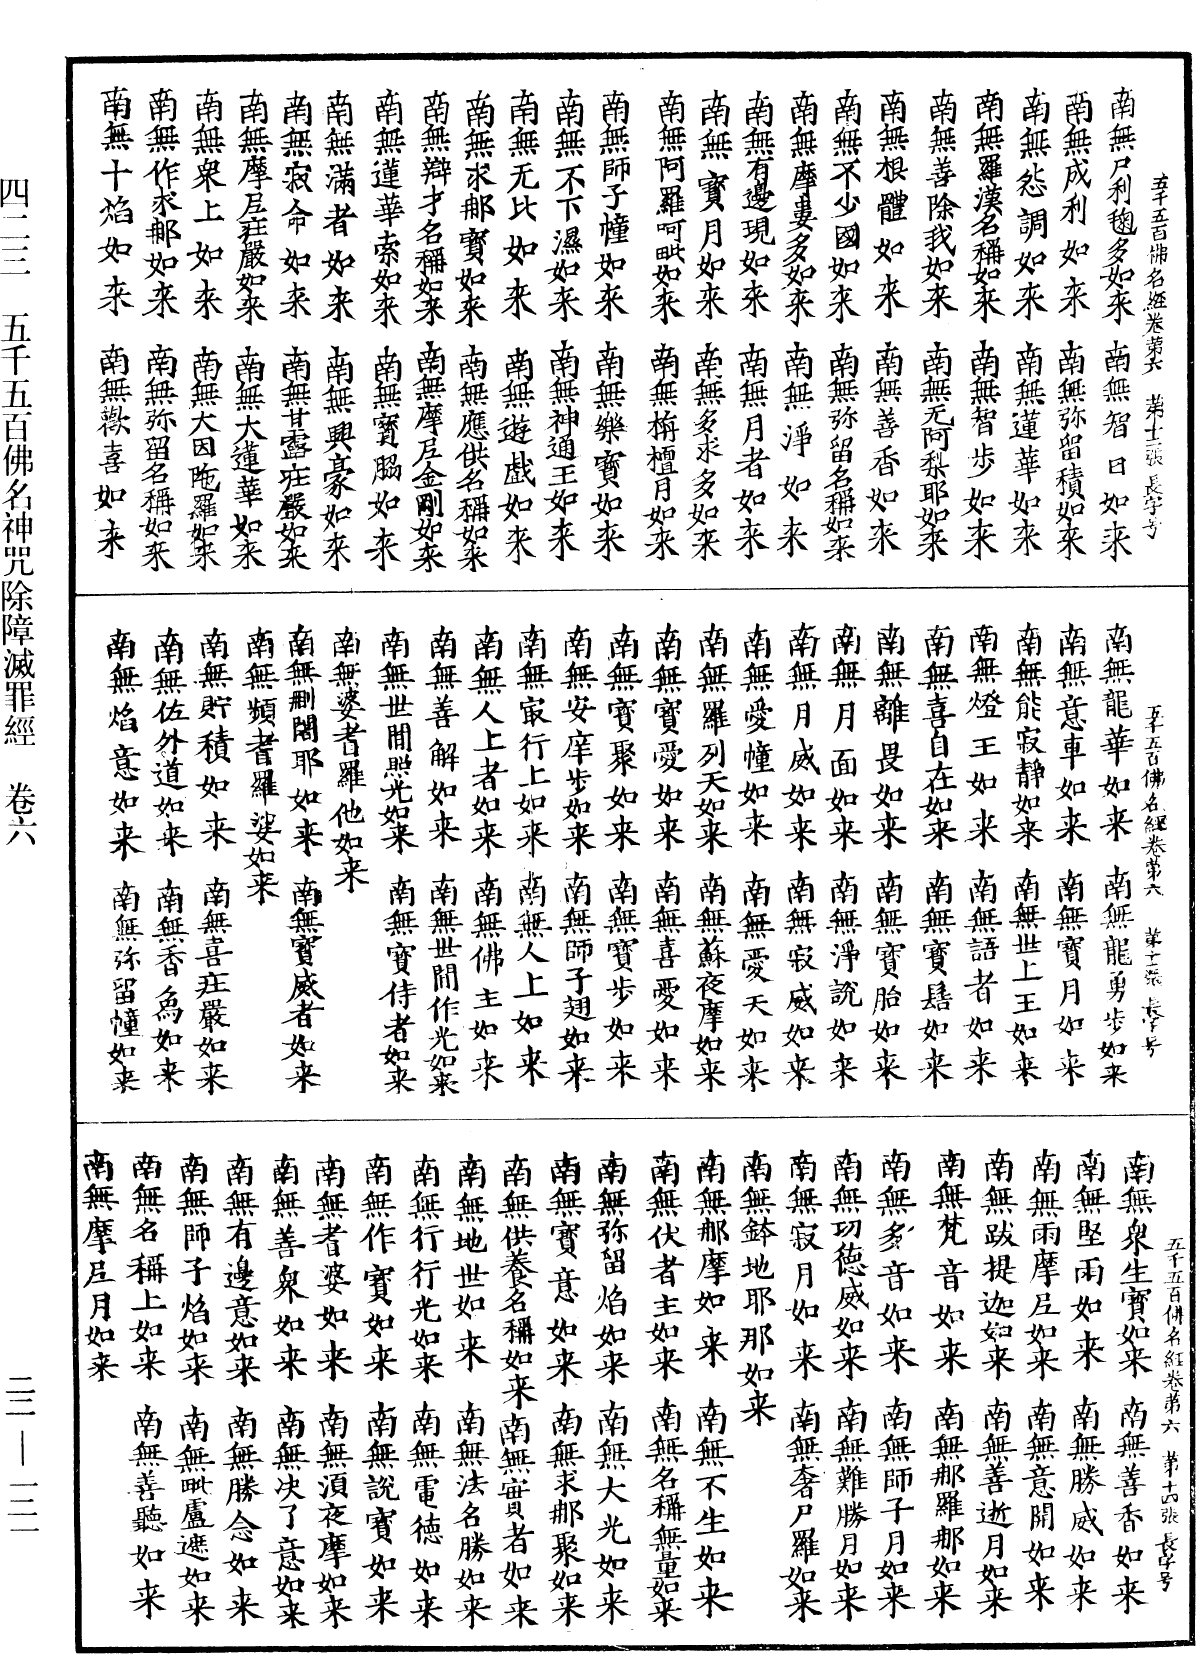 五千五百佛名經卷第六 第十二張 長字号
南無尸利毱多如来 南無智日如来
南無成利如来 南無弥留積如来
南無怨調如来 南無蓮華如来
南無羅漢名稱如来 南無智步如来
南無善除我如来 南無无阿梨耶如来
南無根體如来 南無善香如来
南無不少國如来 南無弥留名稱如来
南無摩婁多如来 南無淨如来
南無有邊現如来 南無月者如来
南無寶月如来 南無多求多如来
南無阿羅呵毗如来 南無栴檀月如来
南無師子幢如来 南無樂寶如来
南無不下濕如来 南無神通王如来
南無无比如来 南無遊戲如来
南無求那寶如来 南無應供名稱如来
南無辯才名稱如来 南無摩尼金剛如来
南無蓮華索如来 南無寶脇如来
南無滿者如来 南無興豪如来
南無寂命如来 南無甘露莊嚴如来
南無摩尼莊嚴如来 南無大蓮華如来
南無衆上如来 南無大因陁羅如来
南無作求那如来 南無弥留名稱如来
南無十焰如来 南無歡喜如来
五千五百佛名經卷第六 第十三張 長字号
南無龍華如来 南無龍勇步如来
南無意車如来 南無寶月如来
南無能寂靜如来 南無世上王如来
南無燈王如来 南無語者如来
南無喜自在如来 南無寶髻如来
南無離畏如来 南無寶胎如来
南無月面如来 南無淨說如来
南無月威如来 南無寂威如来
南無愛幢如来 南無愛天如来
南無羅列天如来 南無蘇夜摩如来
南無寶愛如来 南無喜愛如来
南無寶聚如来 南無寶步如来
南無安庠步如来 南無師子翅如来
南無㝡行上如来 南無人上如来
南無人上者如来 南無佛主如来
南無善解如来 南無世間作光如来
南無世間照光如来 南無寶侍者如来
南無婆耆羅他如来
南無刪闍耶如来 南無寶威者如来
南無頻耆羅娑如来
南無貯積如来 南無喜莊嚴如来
南無佐外道如来 南無香為如来
南無焰意如来 南無弥留幢如来
五千五百佛名經卷第六 第十四張 長字号
南無衆生寶如来 南無善香如来
南無堅雨如来 南無勝威如来
南無雨摩尼如来 南無意開如来
南無跋提迦如来 南無善逝月如来
南無梵音如来 南無那羅那如来
南無多音如来 南無師子月如来
南無功德威如来 南無難勝月如来
南無寂月如来 南無奢尸羅如来
南無鉢地耶那如来
南無那摩如来 南無不生如来
南無伏者主如来 南無名稱無量如来
南無弥留焰如来 南無大光如来
南無寶意如来 南無求那聚如来
南無供養名稱如来 南無實者如来
南無地世如来 南無法名勝如来
南無行行光如来 南無電德如来
南無作寶如来 南無說寶如来
南無耆婆如来 南無須夜摩如来
南無善衆如来 南無决了意如来
南無有邊意如来 南無勝念如来
南無師子焰如来 南無毗盧遮如来
南無名稱上如来 南無善聽如来
南無摩尼月如来
四二三 五千五百佛名神咒除障滅罪經 卷六
二三—一二一